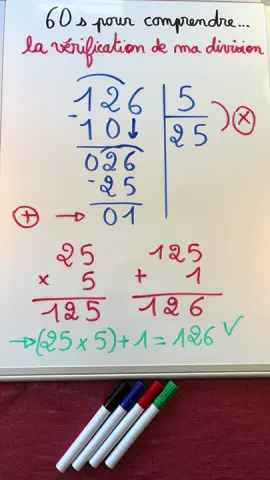 60 s pour comprendre...
la vérification de ma division
126 | 5
- 10↓ | 25 ) ×
026
- 25
+ → 01
25 125
× 5 + 1
125 126
→ (25 × 5) + 1 = 126 ✓